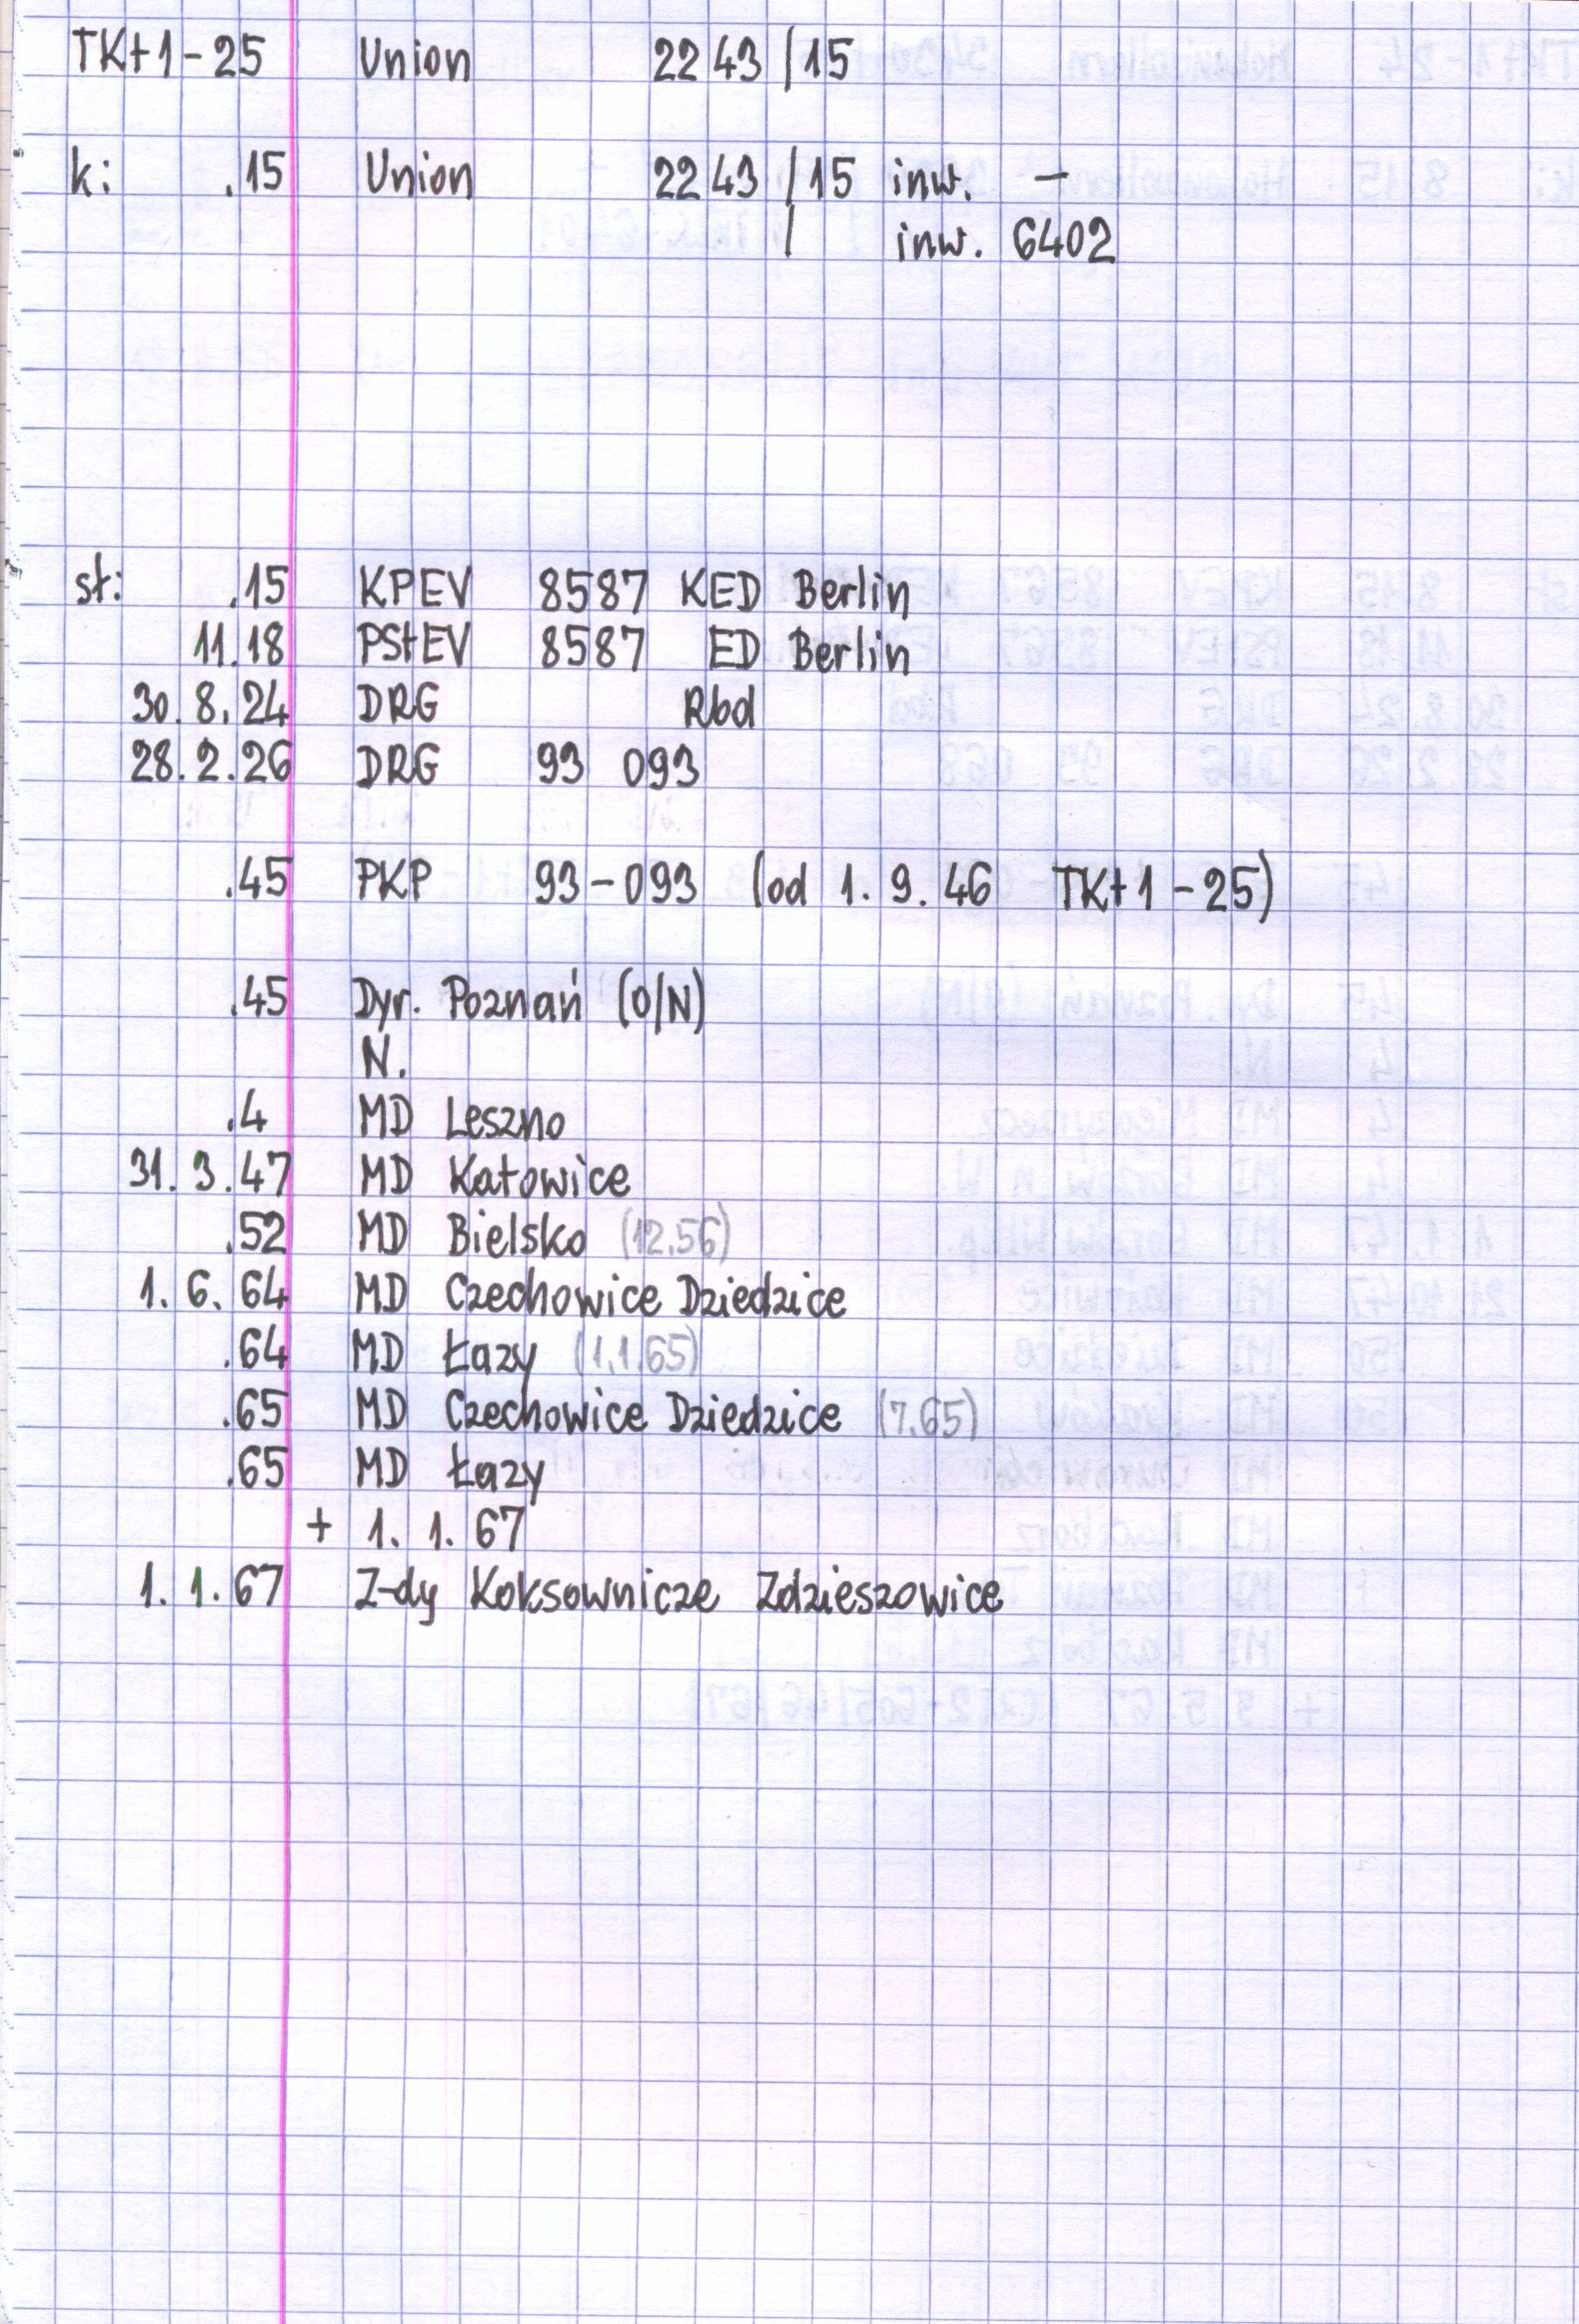 TKt1-25 Union 2243/15
k: .15 Union 2243/15 inw. –
/ inw. 6402
st: .15 KPEV 8587 KED Berlin
11.18 PStEV 8587 ED Berlin
30.8.24 DRG Rbd
28.2.26 DRG 93 093
.45 PKP 93-093 (od 1.9.46 TKt1-25)
.45 Dyr. Poznań (O/N)
N.
.4 MD Leszno
31.3.47 MD Katowice
.52 MD Bielsko (12.56)
1.6.64 MD Czechowice Dziedzice
.64 MD Łazy (1.1.65)
.65 MD Czechowice Dziedzice (7.65)
.65 MD Łazy
+ 1.1.67
1.1.67 Z-dy Koksownicze Zdzieszowice